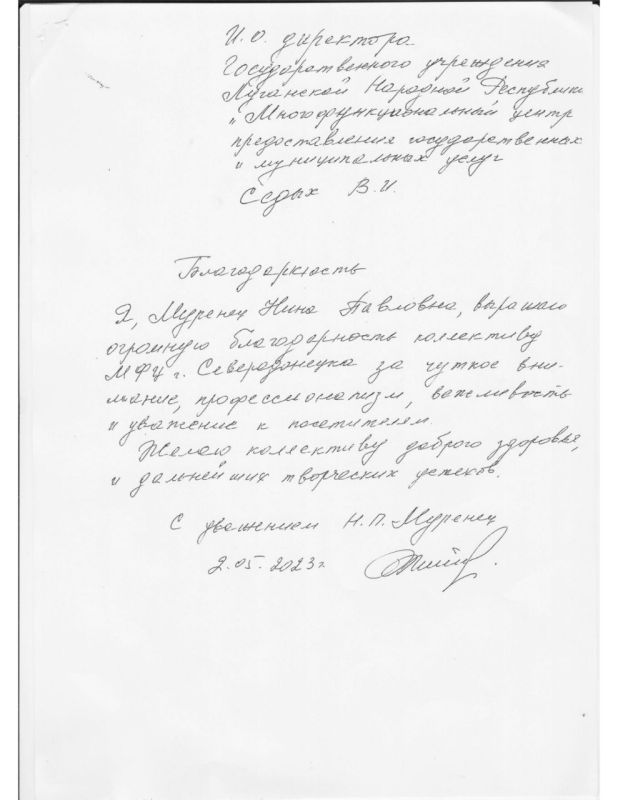 И.О. директора
Государственного учреждения
Луганской Народной Республики
"Многофункциональный центр
предоставления государственных
и муниципальных услуг
Седых В.И.
Благодарность
Я, Муренец Нина Павловна, выражаю
огромную благодарность коллективу
МФЦ г. Северодонецка за чуткое вни-
мание, профессионализм, вежливость
и уважение к посетителям.
Желаю коллективу доброго здоровья,
и дальнейших творческих успехов.
С уважением Н.П. Муренец
2.05.2023г.